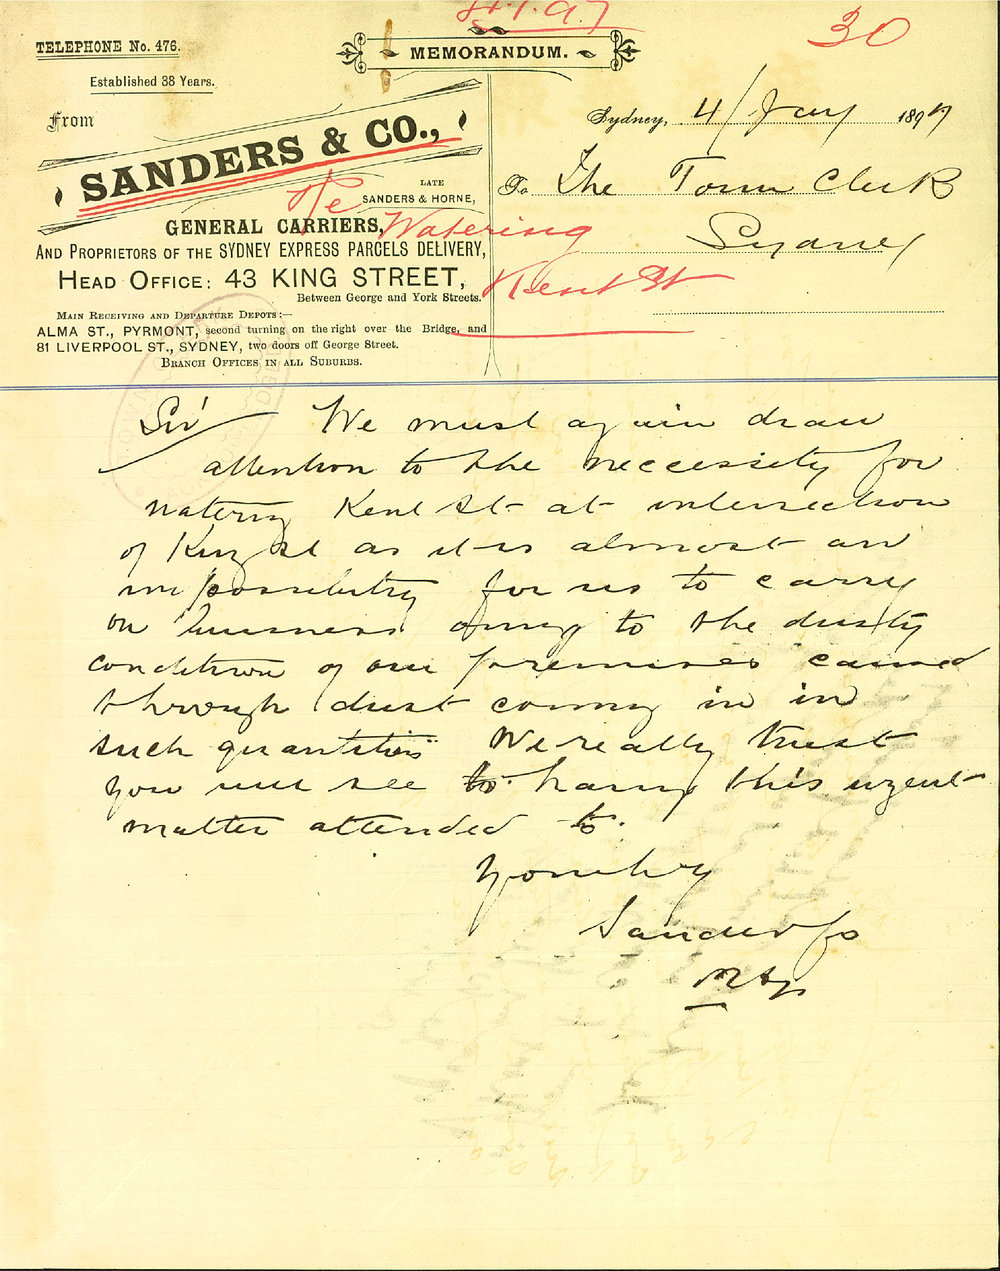 4.1.97
30
TELEPHONE No. 476.
MEMORANDUM.
Established 38 Years.
From
Sydney, 4/Jany 1897
SANDERS & CO.,
To The Town Clerk
LATE
SANDERS & HORNE,
Re Watering
GENERAL CARRIERS,
Sydney
AND PROPRIETORS OF THE SYDNEY EXPRESS PARCELS DELIVERY,
HEAD OFFICE: 43 KING STREET,
Kent St
Between George and York Streets.
MAIN RECEIVING AND DEPARTURE DEPOTS:—
ALMA ST., PYRMONT, second turning on the right over the Bridge, and
81 LIVERPOOL ST., SYDNEY, two doors off George Street.
BRANCH OFFICES IN ALL SUBURBS.
Sir We must again draw
attention to the neccessity for
watering Kent St at intersection
of King St as it is almost an
impossibility for us to carry
on business owing to the dusty
condition of our premises caused
through dust coming in in
such quantities We really trust
you will see to having this urgent
matter attended to.
Yours truly
Sanders & Co